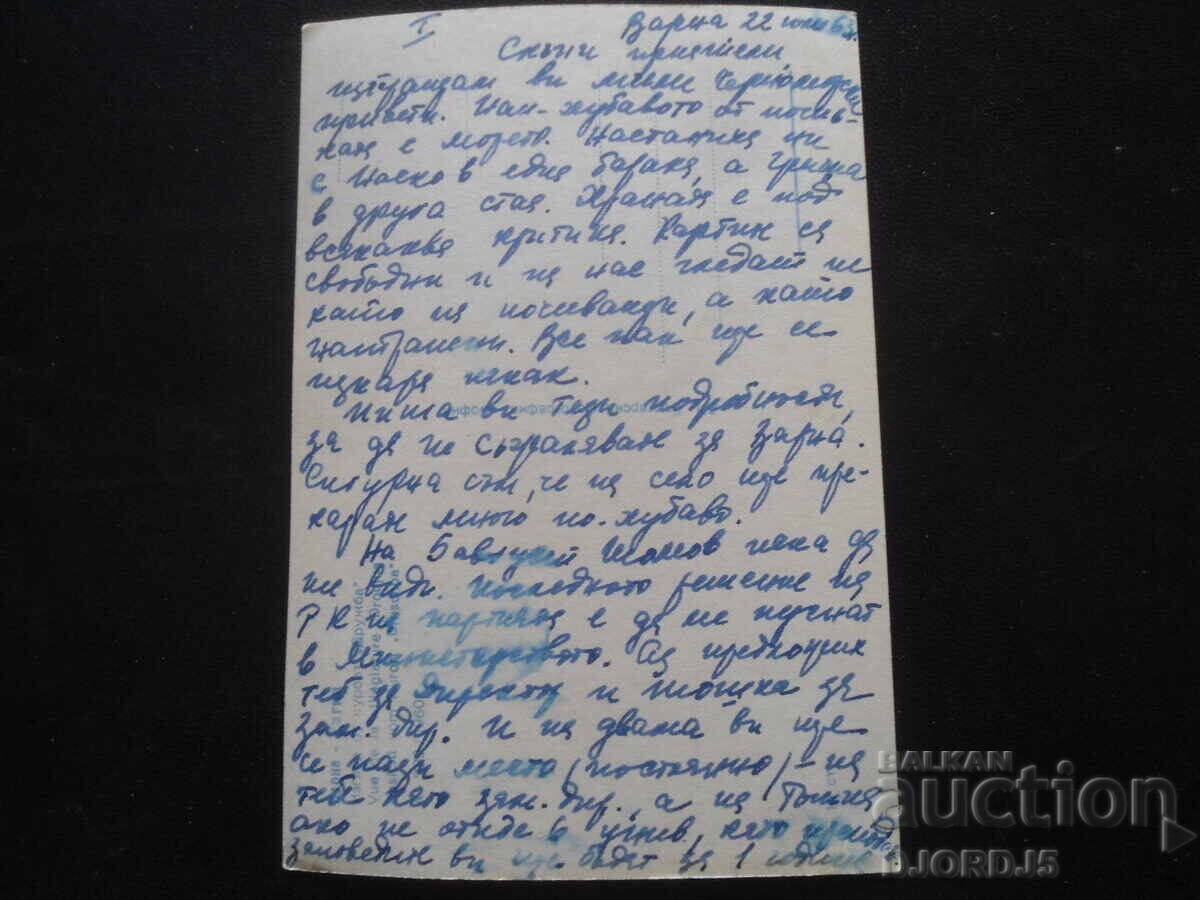 I
Варна 22 юни 63г.
Скъпи приятели
изпращам ви мили черноморски
привети. Най-хубавото от почив-
ката е морето. Настаниха ни
с Наско в една барака, а Гриша
в друга стая. Храната е под
всякаква критика. са
свободни и на нас гледат не
като на почиващи, а като
натрапени. Все пак ще се
изкара някак.
Пиша ви тези подробности,
за да не съжалявате за Варна.
Сигурна съм, че на село ще пре-
карате много по-хубаво.
На 5 август нека да
ни види. Последното решение на
РК на партията е да не пуснат
в Министерството. Аз предложих
теб за директор и Тошка за
зам. дир. И на двама ви ще
се пази место (постоянно) - на
теб като зам. дир., а на Тошка
ако не отиде в като
заповедите ви ще бъдат за 1 година
Варна - Varna
BALKAN
auction
BJORDJ5